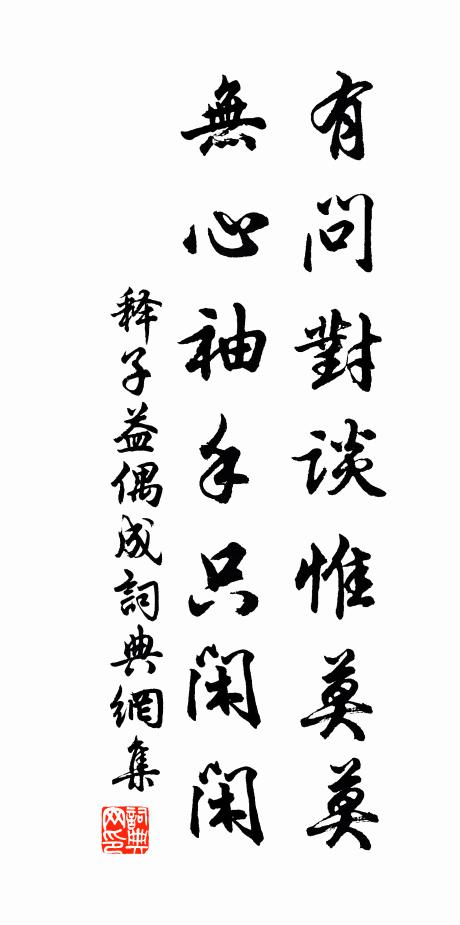 有問對談惟莫莫
無心袖手只閑閑
释子益偶成詞典網集
詞典网印